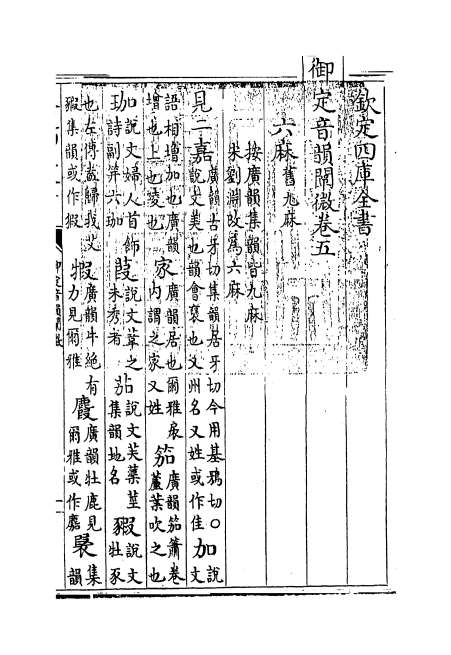 欽定四庫全書
御定音韻闡微卷五
六麻舊九麻
按廣韻集韻皆九麻
宋劉淵改為六麻
見二嘉廣韻古牙切集韻居牙切今用基鴉切〇
說文美也韻會褒也又州名又姓或作佳加說文
語相增加也廣韻
增也上也陵也家廣韻居也爾雅扆
內謂之家又姓笳廣韻笳簫卷
蘆葉吹之也
珈說文婦人首飾
詩副笄六珈葭說文葦之
未秀者茄說文芙蕖莖
集韻地名豭說文
牡豕
也左傳盍歸我艾
豭集韻或作犌廣韻牛絕有
力見爾雅麚廣韻牡鹿見
爾雅或作麢䕒集
韻